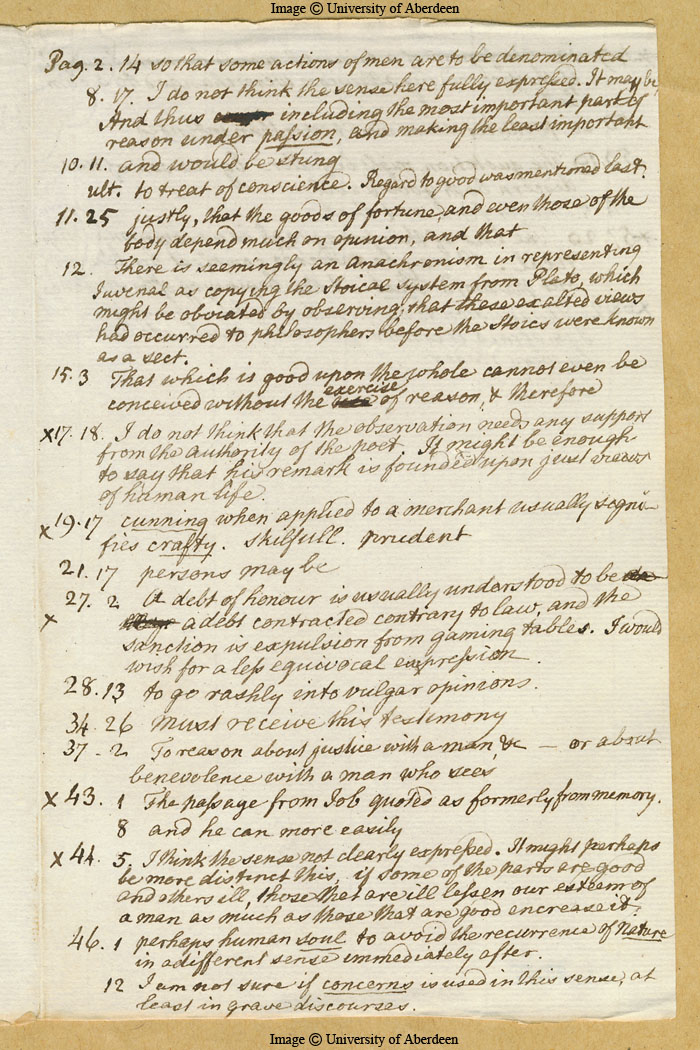 Image © University of Aberdeen
Pag. 2. 14 so that some actions of men are to be denominated
8. 17. I do not think the sense here fully expressed. It may be
And thus including the most important part of
reason under passion, and making the least important
10. 11. and would be stung
ult. to treat of conscience. Regard to good was mentioned last.
11. 25 justly, that the goods of fortune, and even those of the
body depend much on opinion, and that
12. There is seemingly an anachronism in representing
Juvenal as copying the stoical system from Plato, which
might be obviated by observing, that these exalted views
had occurred to philosophers before the Stoics were known
as a sect.
15. 3 That which is good upon the whole cannot even be
conceived without the exercise of reason, & therefore
x17. 18. I do not think that the observation needs any support
from the authority of the poet. It might be enough
to say that his remark is founded upon just views
of human life.
x 19. 17 cunning when applied to a merchant usually signi-
fies crafty. skilfull. prudent
21. 17 persons may be
27. 2 A debt of honour is usually understood to be
x a debt contracted contrary to law, and the
sanction is expulsion from gaming tables. I would
wish for a less equivocal expression.
28. 13 to go rashly into vulgar opinions.
34. 26 must receive this testimony
37. 2 To reason about justice with a man &c — or about
benevolence with a man who sees
x 43. 1 The passage from Job quoted as formerly from memory.
8 and he can more easily
x 44. 5. I think the sense not clearly expressed. It might perhaps
be more distinct thus, if some of the parts are good
and others ill, those that are ill lessen our esteem of
a man as much as those that are good encrease it.
46. 1 perhaps human soul to avoid the recurrence of Nature
in a different sense immediately after.
12 I am not sure if concerns is used in this sense, at
least in grave discourses.
Image © University of Aberdeen